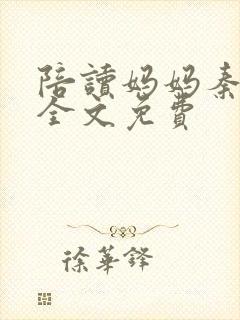 陪讀妈妈秦
全文免費
徐華鋒